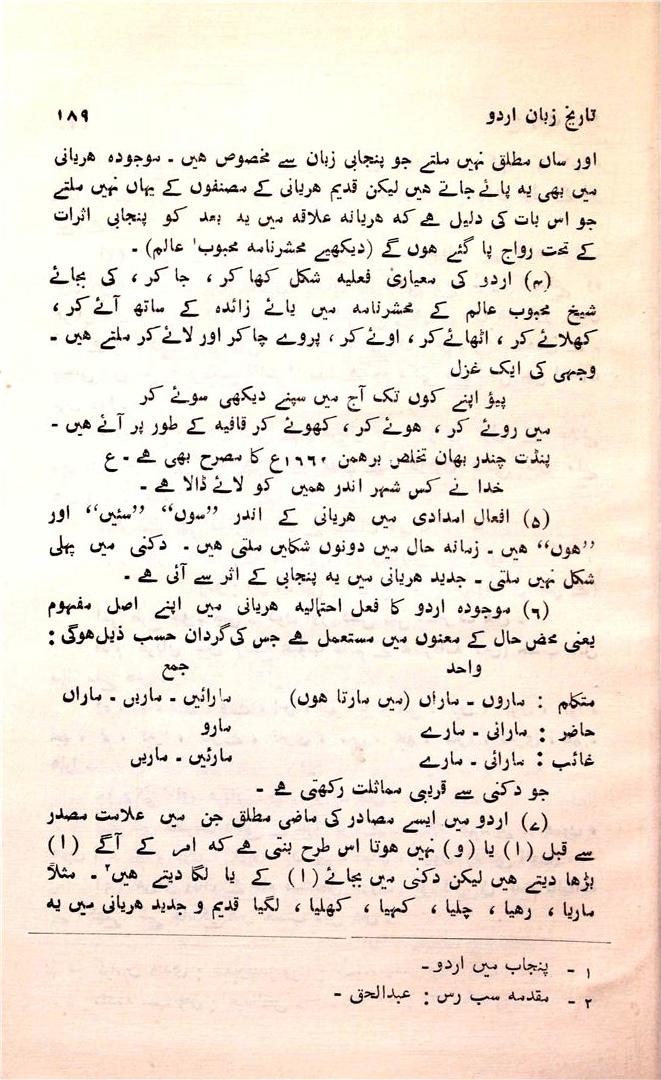 تاریخ زبان اردو ۱۸۹
اور ساں مطلق نہیں ملتے جو پنجابی زبان سے مخصوص ھیں ۔ موجودہ ھریانی
میں بھی یہ پائے جاتے ھیں لیکن قدیم ھریانی کے مصنفوں کے یہاں نہیں ملتے
جو اس بات کی دلیل ہے کہ ھریانہ علاقہ میں یہ بعد کو پنجابی اثرات
کے تحت رواج پا گئے ھوں گے (دیکھیے محشرنامہ محبوب' عالم) ۔
(۴) اردو کی معیاری فعلیہ شکل کھا کر ، جا کر ، کی بجائے
شیخ محبوب عالم کے محشرنامہ میں یائے زائدہ کے ساتھ آئے کر ،
کھلائے کر ، اٹھائے کر ، اوئے کر ، پروے چا کر اور لائے کر ملتے ھیں ۔
وجہی کی ایک غزل
پیؤ اپنے کوں تک آج میں سپنے دیکھی سوئے کر
میں روئے کر ، ھوئے کر ، کھوئے کر قافیہ کے طور پر آئے ھیں ۔
پنڈت چندر بھان تخلص برھمن ۱۶۶۲ع کا مصرح بھی ہے ۔ ع
خدا نے کس شہر اندر ھمیں کو لائے ڈالا ہے ۔
(۵) افعال امدادی میں ھریانی کے اندر ”سوں“ ”سئیں“ اور
”ھوں“ ھیں ۔ زمانہ حال میں دونوں شکلیں ملتی ھیں ۔ دکنی میں پہلی
شکل نہیں ملتی ۔ جدید ھریانی میں یہ پنجابی کے اثر سے آئی ہے ۔
(۶) موجودہ اردو کا فعل احتمالیہ ھریانی میں اپنے اصل مفہوم
یعنی محض حال کے معنوں میں مستعمل ہے جس کی گردان حسب ذیل ھوگی :
واحد جمع
متکلم : ماروں ۔ ماراں (میں مارتا ھوں) مارائیں ۔ ماریں ۔ ماراں
حاضر : مارانی ۔ مارے مارو
غائب : مارائی ۔ مارے مارئیں ۔ ماریں
جو دکنی سے قریبی مماثلت رکھتی ہے ۔
(۷) اردو میں ایسے مصادر کی ماضی مطلق جن میں علامت مصدر
سے قبل (ا) یا (و) نہیں ھوتا اس طرح بنتی ہے کہ امر کے آگے (ا)
بڑھا دیتے ھیں لیکن دکنی میں بجائے (ا) کے یا لگا دیتے ھیں۲ ۔ مثلاً
ماریا ، رھیا ، چلیا ، کہیا ، کھلیا ، لگیا قدیم و جدید ھریانی میں یہ
۱ ۔ پنجاب میں اردو ۔
۲ ۔ مقدمہ سب رس : عبدالحق ۔